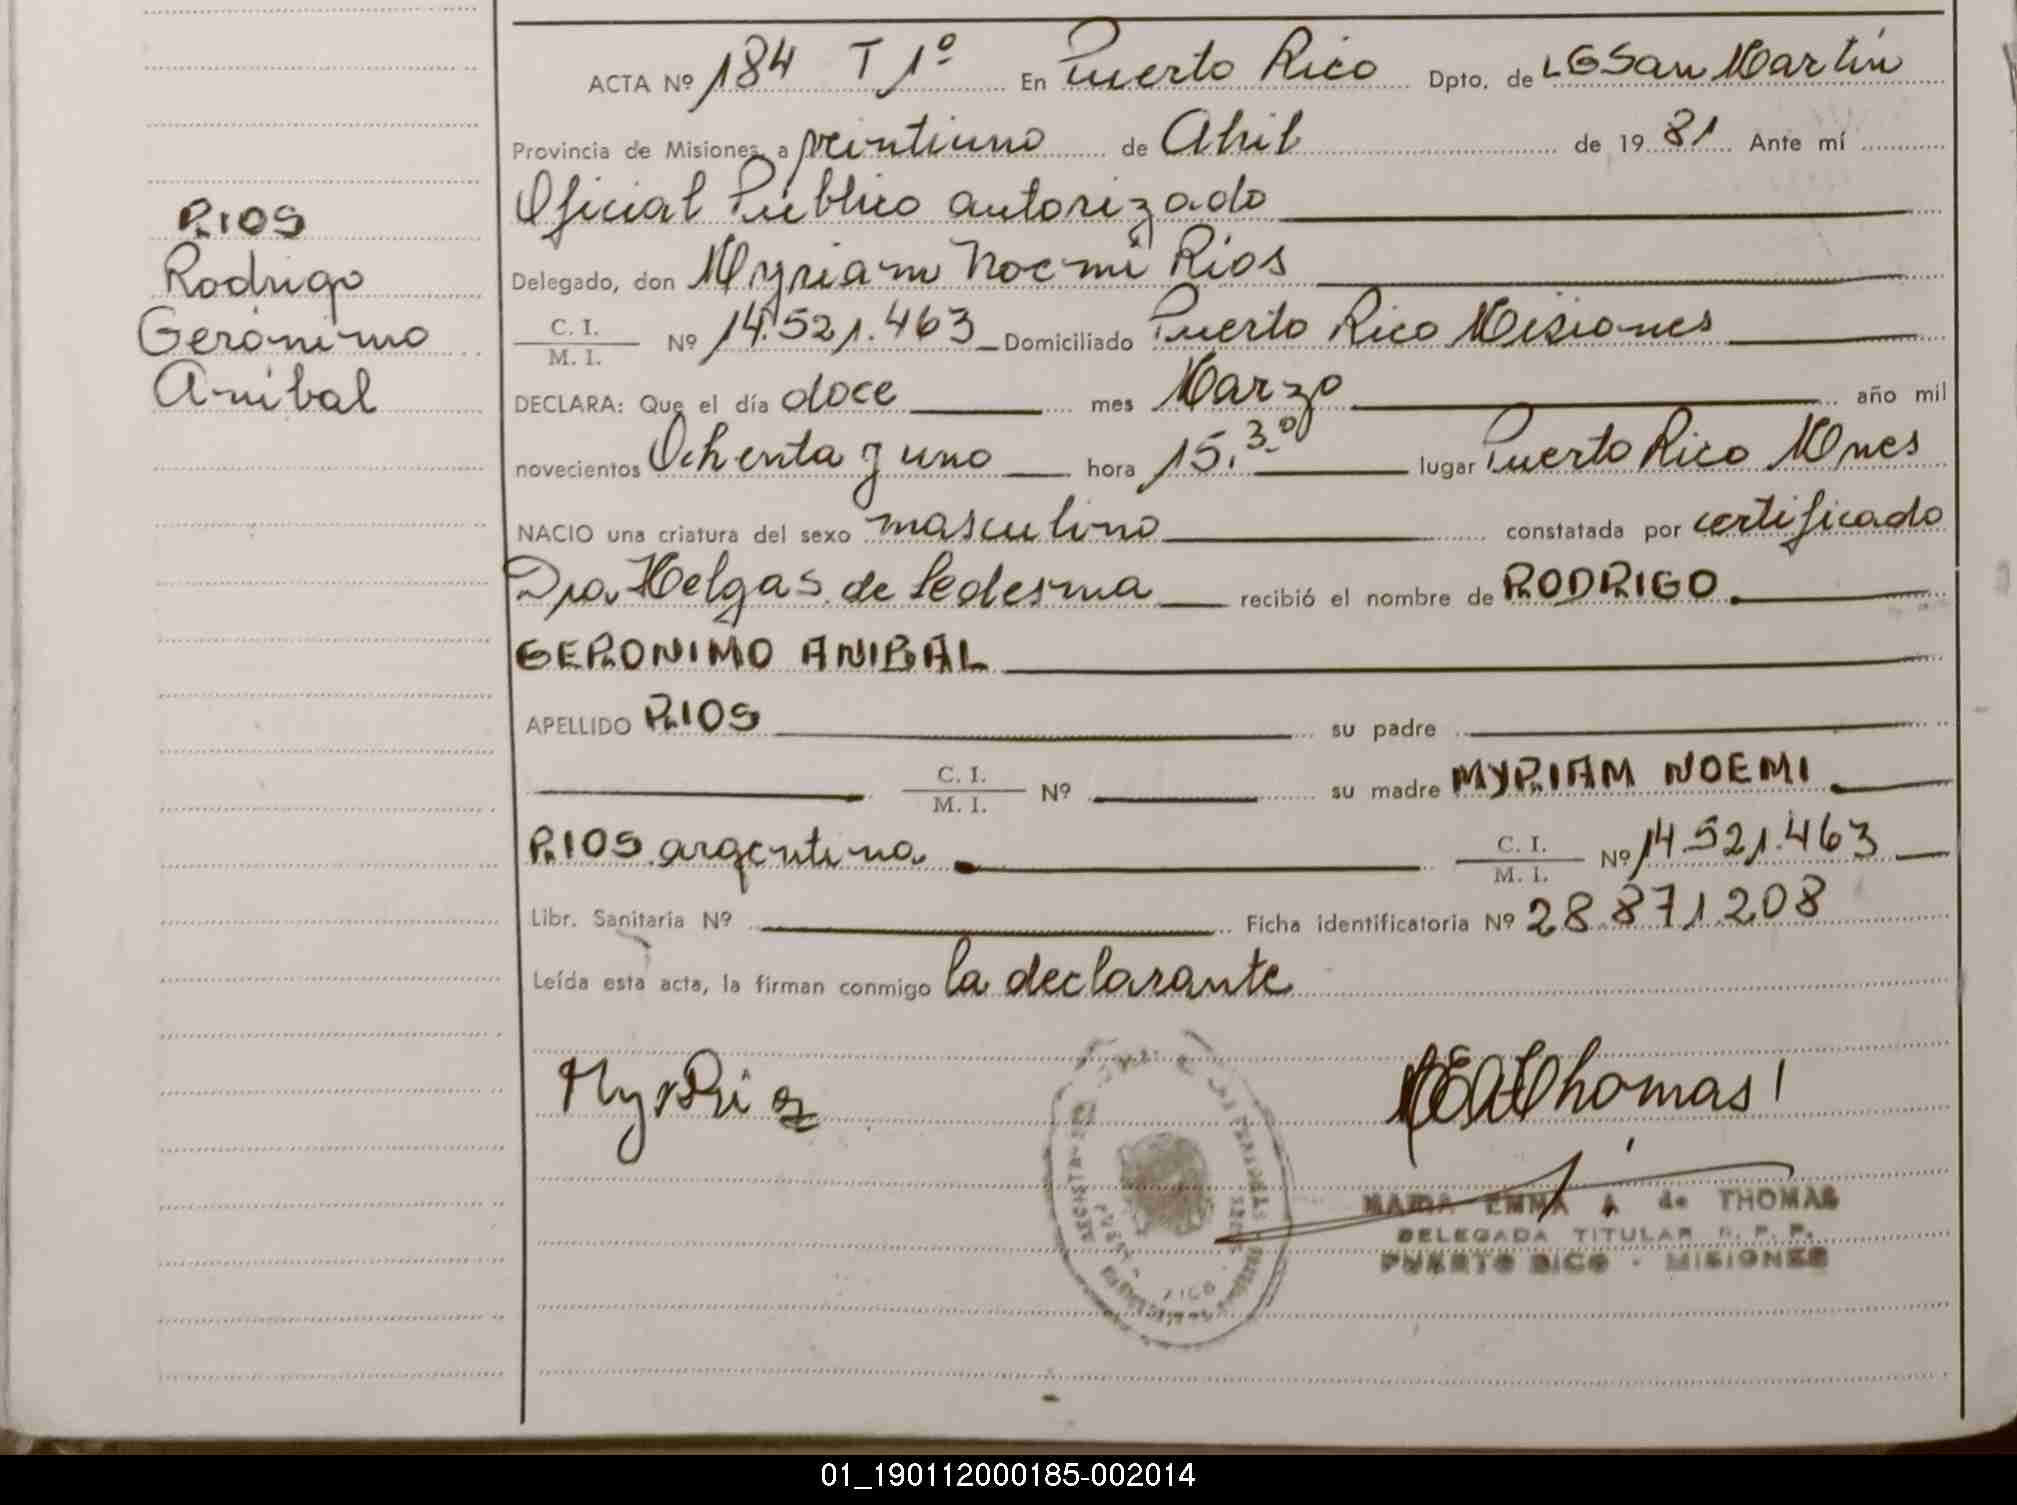 ACTA Nº 184 T 1º En Puerto Rico Dpto. de LGSan Martín
Provincia de Misiones, a veintiuno de Abril de 19 81 Ante mí
Oficial Público autorizado
Delegado, don Myriam Noemi Rios
C. I.
M. I. Nº 14.521.463 Domiciliado Puerto Rico Misiones
DECLARA: Que el día doce mes Marzo año mil
novecientos Ochenta y uno hora 15,30 lugar Puerto Rico Mnes
NACIO una criatura del sexo masculino constatada por certificado
Dra. Helga S. de Ledesma recibió el nombre de RODRIGO
GERONIMO ANIBAL
APELLIDO RIOS su padre
C. I.
M. I. Nº su madre MYRIAM NOEMI
RIOS argentina C. I.
M. I. Nº 14.521.463
Libr. Sanitaria Nº Ficha identificatoria Nº 28.871.208
Leída esta acta, la firman conmigo la declarante
RIOS
Rodrigo
Gerónimo
Anibal
Thomas
MARIA EMMA A de THOMAS
DELEGADA TITULAR R. P. P.
PUERTO RICO - MISIONES
01_190112000185-002014